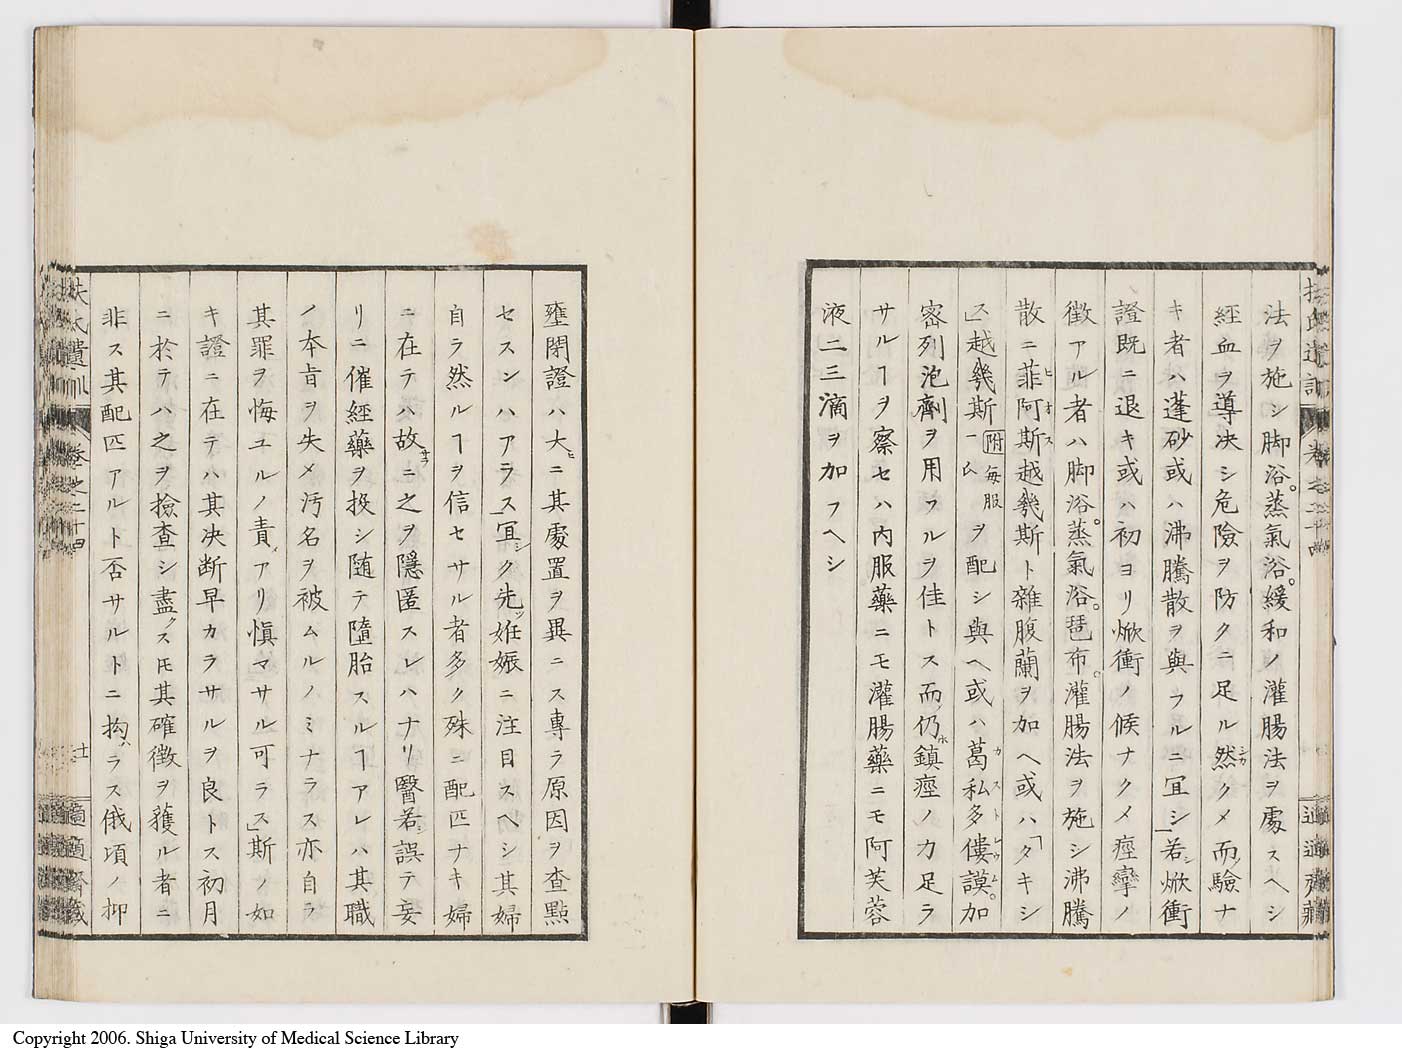 法ヲ施シ脚浴。蒸氣浴。緩和ノ灌腸法ヲ處スヘシ
經血ヲ導决シ危險ヲ防クニ足ル然シカクメ而ノ驗ナ
キ者ハ蓬砂或ハ沸騰散ヲ與フルニ冝シ」若シ焮衝
證既ニ退キ或ハ初ヨリ焮衝ノ候ナクメ痙攣ノ
徴アル者ハ脚浴。蒸氣浴。琶布。灌腸法ヲ施シ沸騰
散ニ菲ヒ阿オ斯ス越幾斯ト雜腹蘭ヲ加ヘ或ハ「タキシ
ス」越幾斯 附 毎服一ゲ ヲ配シ與ヘ或ハ葛カ私ス多ト僂レウ謨ム。加
密列泡劑ヲ用フルヲ佳トス而ノ仍ホ鎮痙ノ力足ラ
サルヿヲ察セハ內服藥ニモ灌腸藥ニモ阿芙蓉
液二三滴ヲ加フヘシ
壅閉證ハ大ヒニ其處置ヲ異ニス專ラ原因ヲ査點
セスンハアラス」冝シク先ツ妊娠ニ注目スヘシ其婦
自ラ然ルヿヲ信セサル者多ク殊ニ配匹ナキ婦
ニ在テハ故サラニ之ヲ隱匿スレハナリ醫若シ誤テ妄
リニ催經藥ヲ投シ随テ墮胎スルヿアレハ其職
ノ本旨ヲ失メ汚名ヲ被ムルノミナラス亦自ラ
其罪ヲ悔ユルノ責メアリ愼マサル可ラス」斯ノ如
キ證ニ在テハ其决断早カラサルヲ良トス初月
ニ於テハ之ヲ撿查シ盡クスモ其確徴ヲ獲ル者ニ
非ス其配匹アルト否サルトニ拘ハラス俄頃ノ抑
扶氏遺訓 卷之二十四 十一 適適齋藏